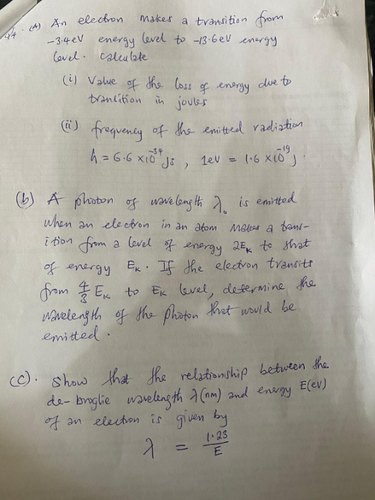 (A) An electron makes a transition from
-3.4eV energy level to -13.6eV energy
level. Calculate
(i) Value of the loss of energy due to
transition in joules
(ii) frequency of the emitted radiation
h = 6.6 x10⁻³⁴ Js , 1eV = 1.6 x10⁻¹⁹J.
(b) A photon of wavelength λ₀ is emitted
when an electron in an atom makes a trans-
ition from a level of energy 2Eₖ to that
of energy Eₖ. If the electron transits
from 4/3 Eₖ to Eₖ level, determine the
wavelength of the photon that would be
emitted.
(C). Show that the relationship between the
de-broglie wavelength λ(nm) and energy E(eV)
of an electron is given by
λ = 1.23/E